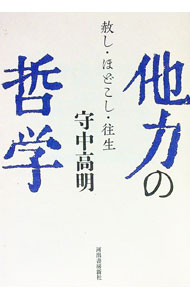 他力の
哲学
赦し・ほどこし・往生
守中高明
河出書房新社